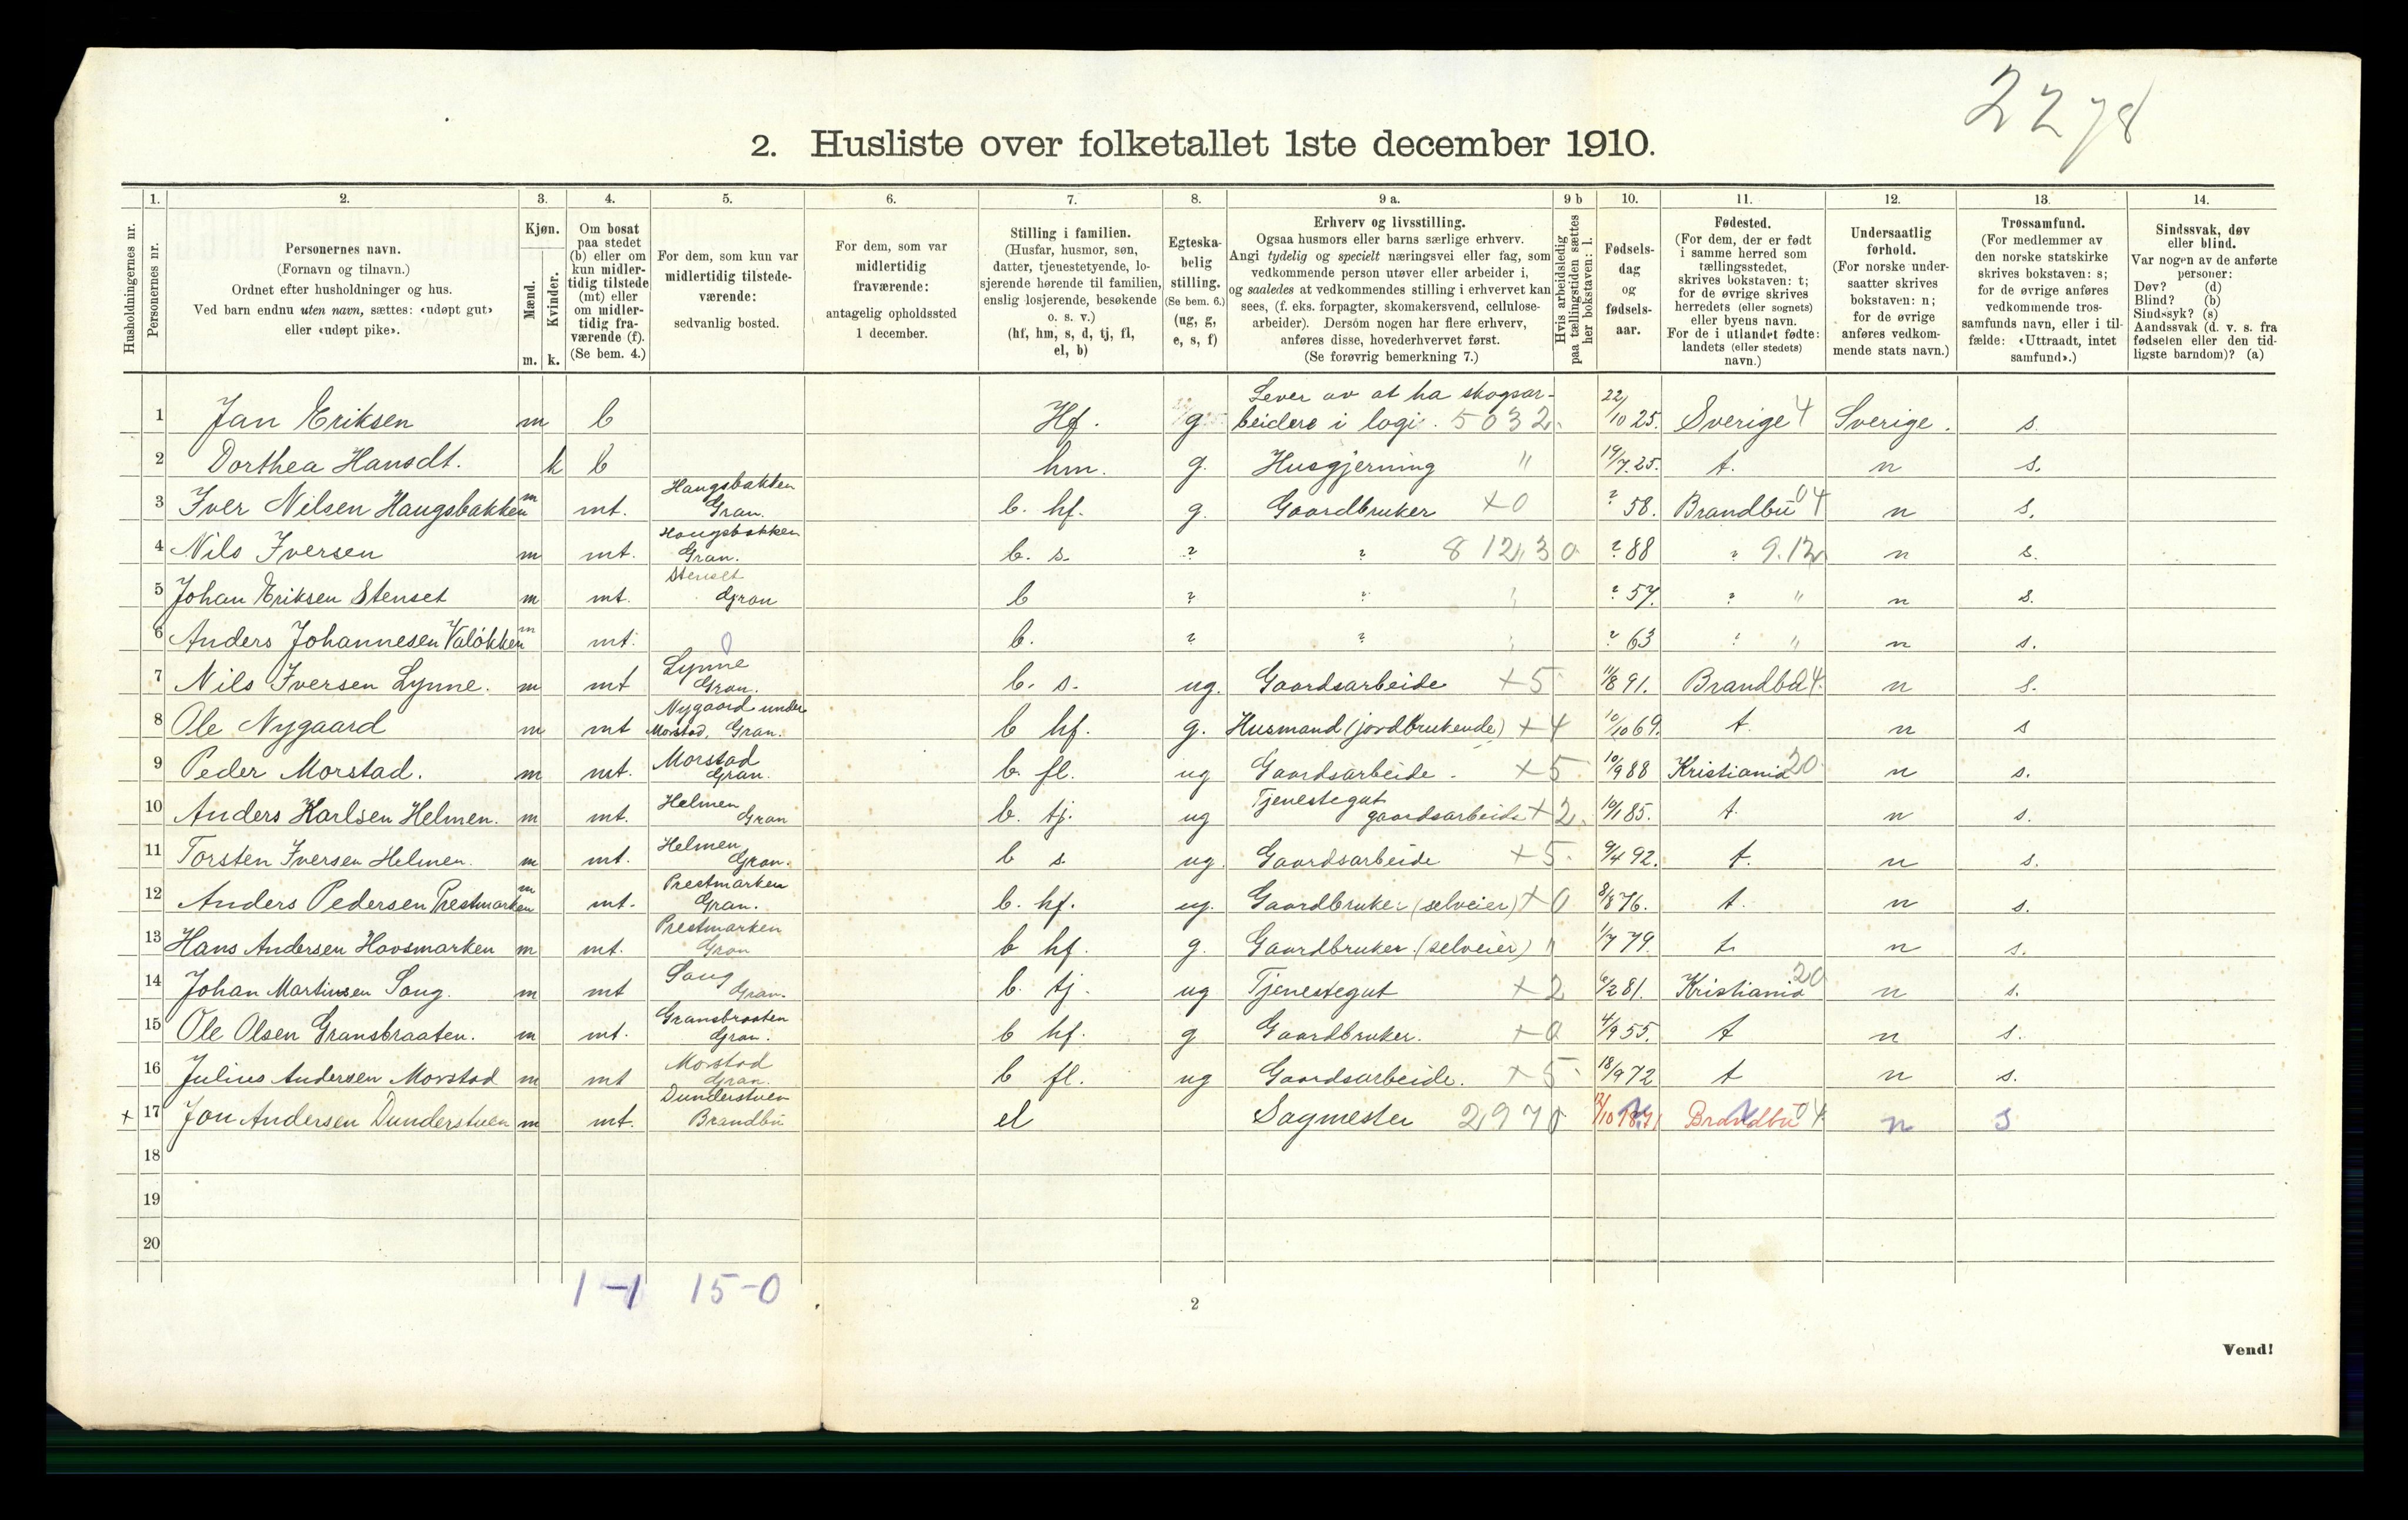 2278
2. Husliste over folketallet 1ste december 1910.
1. 2. 3. 4. 5. 6. 7. 8. 9 a. 9 b 10. 11. 12. 13. 14.
Husholdningernes nr.
Personernes nr.
Personernes navn.
(Fornavn og tilnavn.)
Ordnet efter husholdninger og hus.
Ved barn endnu uten navn, sættes: «udøpt gut»
eller «udøpt pike».
Kjøn.
Mænd.
Kvinder.
m. k.
Om bosat
paa stedet
(b) eller om
kun midler-
tidig tilstede
(mt) eller
om midler-
tidig fra-
værende (f).
(Se bem. 4.)
For dem, som kun var
midlertidig tilstede-
værende:
sedvanlig bosted.
For dem, som var
midlertidig
fraværende:
antagelig opholdssted
1 december.
Stilling i familien.
(Husfar, husmor, søn,
datter, tjenestetyende, lo-
sjerende hørende til familien,
enslig losjerende, besøkende
o. s. v.)
(hf, hm, s, d, tj, fl,
el, b)
Egteska-
belig
stilling.
(Se bem. 6.)
(ug, g,
e, s, f)
Erhverv og livsstilling.
Ogsaa husmors eller barns særlige erhverv.
Angi tydelig og specielt næringsvei eller fag, som
vedkommende person utøver eller arbeider i,
og saaledes at vedkommendes stilling i erhvervet kan
sees, (f. eks. forpagter, skomakersvend, cellulose-
arbeider). Dersom nogen har flere erhverv,
anføres disse, hovederhvervet først.
(Se forøvrig bemerkning 7.)
Hvis arbeidsledig
paa tællingstiden sættes
her bokstaven: l.
Fødsels-
dag
og
fødsels-
aar.
Fødested.
(For dem, der er født
i samme herred som
tællingsstedet,
skrives bokstaven: t;
for de øvrige skrives
herredets (eller sognets)
eller byens navn.
For de i utlandet fødte:
landets (eller stedets)
navn.)
Undersaatlig
forhold.
(For norske under-
saatter skrives
bokstaven: n;
for de øvrige
anføres vedkom-
mende stats navn.)
Trossamfund.
(For medlemmer av
den norske statskirke
skrives bokstaven: s;
for de øvrige anføres
vedkommende tros-
samfunds navn, eller i til-
fælde: «Uttraadt, intet
samfund».)
Sindssvak, døv
eller blind.
Var nogen av de anførte
personer:
Døv? (d)
Blind? (b)
Sindssyk? (s)
Aandssvak (d. v. s. fra
fødselen eller den tid-
ligste barndom)? (a)
1 Jan Eriksen m b Hf. g Lever av at ha skogsar-
beidere i logi. 5032 22/10 25. Sverige 4 Sverige. s.
2 Dorthea Hansdt. k b hm. g. Husgjerning " 19/7 25. t. n s.
3 Iver Nilsen Haugsbakken m mt. Haugsbakken Gran. b. hf. g. Gaardbruker +0 ? 58. Brandbu 04 n s.
4 Nils Iversen m mt. Haugsbakken Gran. b. s. ? ? 8 12,30 ? 88 ? 9.12 n s.
5 Johan Eriksen Stenset m mt. Stenset Gran b ? ? ? 57. ? " n s.
6 Anders Johannesen Valøkken m mt. 0 b. ? ? ? 63 ? " n s.
7 Nils Iversen Lynne. m mt Lynne Gran. b. s. ug. Gaardsarbeide +5 11/8 91. Brandbu 4. n s.
8 Ole Nygaard m mt Nygaard under Morstad, Gran. b hf. g. Husmand (jordbrukende) +4 10/10 69. t. n s
9 Peder Morstad. m mt. Morstad Gran. b. fl. ug Gaardsarbeide. +5 10/9 88 Kristiania 20 n s.
10 Anders Karlsen Helmen. m mt. Helmen Gran b. tj. ug Tjenestegut gaardsarbeide +2. 10/1 85. t. n s.
11 Torsten Iversen Helmen. m mt. Helmen Gran. b s. ug. Gaardsarbeide +5. 9/4 92. t. n s.
12 Anders Pedersen Prestmarken m mt. Prestmarken Gran. b. hf. ug. Gaardbruker (selveier) +0 8/8 76. t. n s.
13 Hans Andersen Hovsmarken m mt. Prestmarken Gran b hf. g. Gaardbruker (selveier) " 1/7 79. t. n s.
14 Johan Martinsen Sang. m mt Sang Gran. b. tj. ug Tjenestegut +2 6/2 81. Kristiania 20 n s.
15 Ole Olsen Gransbraaten. m mt. Gransbraaten Gran. b hf. g Gaardbruker. +0 4/9 55. t n s.
16 Julius Andersen Morstad m mt Morstad Gran. b fl. ug Gaardsarbeide. +5 18/9 72 t n s.
+ 17 Jon Andersen Dunderstuen m mt. Dunderstuen Brandbu el Sagmester 2970 12/10 1871 Brandbu 04 n s
18
19
20
1-1 15-0
2
Vend!